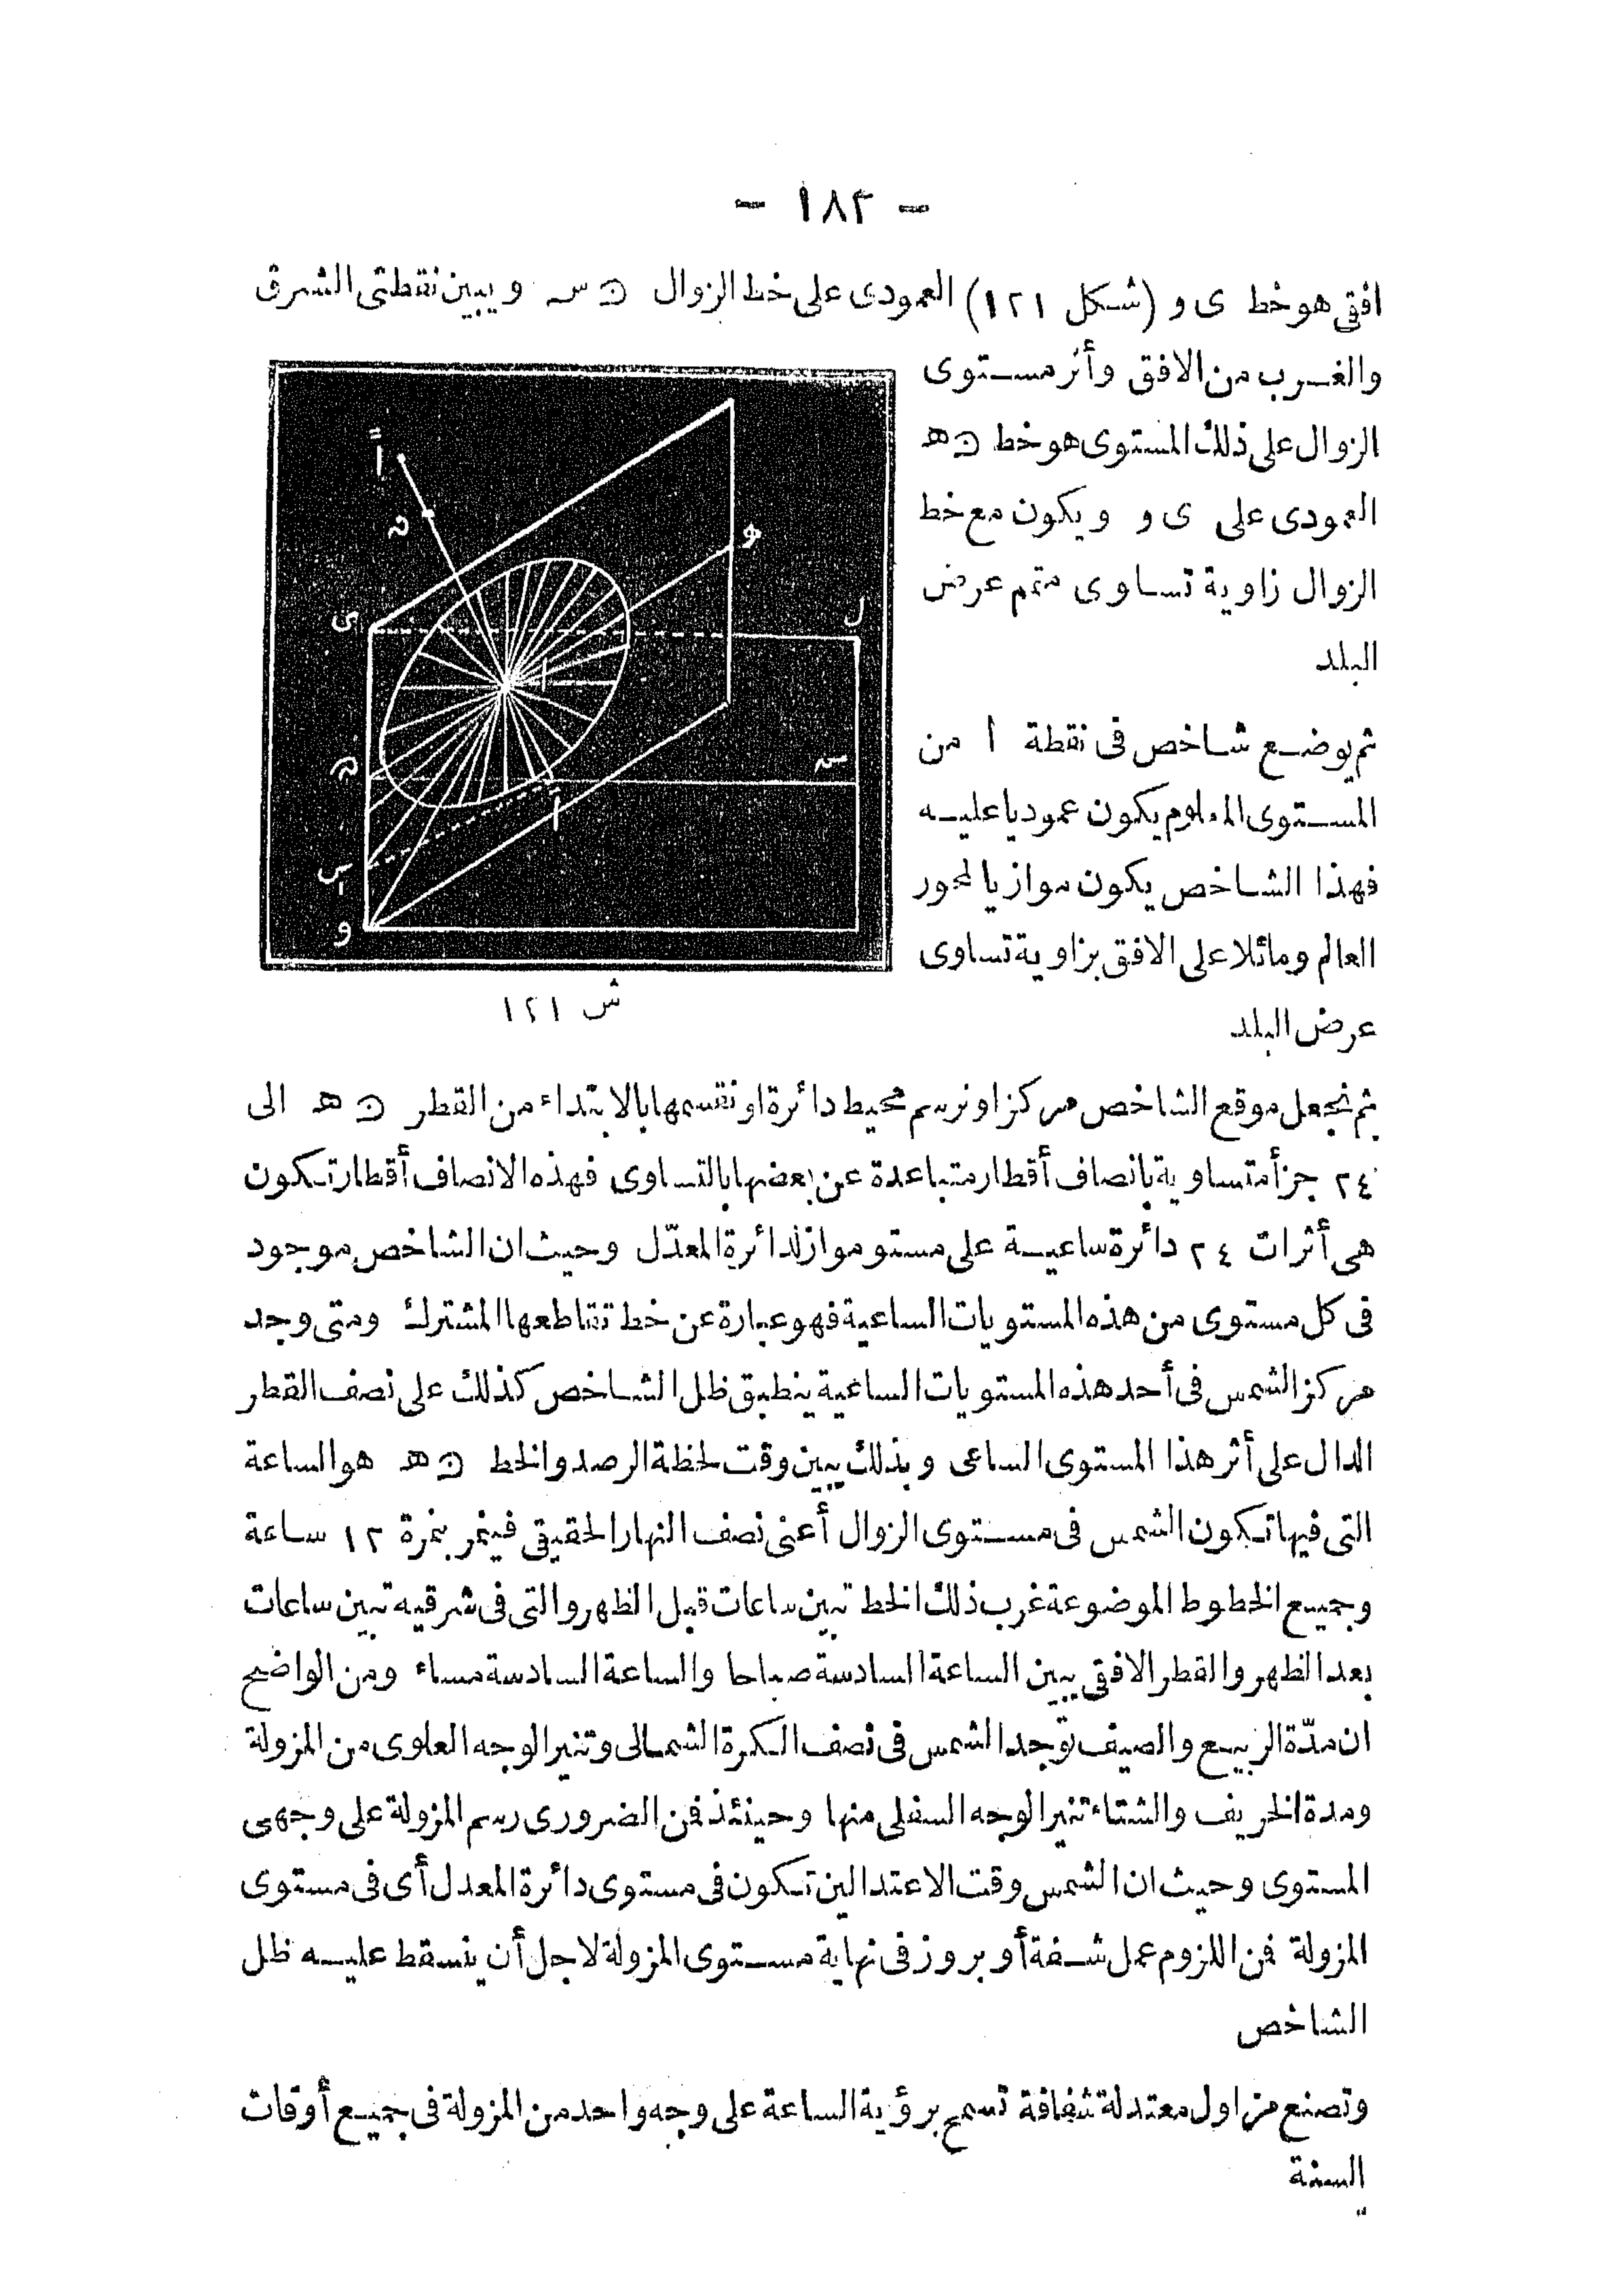 — ١٨٢ —
افقى هو خط ى و (شكل ١٢١) العمودى على خط الزوال ن س ويبين نقطتى الشرق
والغرب من الافق وأثر مستوى
الزوال على ذلك المستوى هو خط ن ه
العمودى على ى و ويكون مع خط
الزوال زاوية تساوى متمم عرض
البلد
ثم يوضع شاخص فى نقطة ا من
المستوى المعلوم يكون عموديا عليه
فهذا الشاخص يكون موازيا لمحور
العالم ومائلا على الافق بزاوية تساوى
عرض البلد
ى
و
ل
س
ا
ا
و
ش ١٢١
ثم نجعل موقع الشاخص مركزا ونرسم محيط دائرة ونقسمها بالابتداء من القطر ن ه الى
٢٤ جزأ متساوية بانصاف أقطار متباعدة عن بعضها بالتساوى فهذه الانصاف أقطار تكون
هى أثرات ٢٤ دائرة ساعية على مستو مواز لدائرة المعدّل وحيث ان الشاخص موجود
فى كل مستوى من هذه المستويات الساعية فهو عبارة عن خط تقاطعها المشترك ومتى وجد
مركز الشمس فى أحد هذه المستويات الساعية ينطبق ظل الشاخص كذلك على نصف القطر
الدال على أثر هذا المستوى الساعى وبذلك يبين وقت لحظة الرصد والخط ن ه هو الساعة
التى فيها تكون الشمس فى مستوى الزوال أعنى نصف النهار الحقيقى فينمر بنمرة ١٢ ساعة
وجميع الخطوط الموضوعة غرب ذلك الخط تبين ساعات قبل الظهر والتى فى شرقيه تبين ساعات
بعد الظهر والقطر الافقى يبين الساعة السادسة صباحا والساعة السادسة مساء ومن الواضح
ان مدّة الربيع والصيف توجد الشمس فى نصف الكرة الشمالى وتنير الوجه العلوى من المزولة
ومدة الخريف والشتاء تنير الوجه السفلى منها وحينئذ فمن الضرورى رسم المزولة على وجهى
المستوى وحيث ان الشمس وقت الاعتدالين تكون فى مستوى دائرة المعدل أى فى مستوى
المزولة فمن اللزوم عمل شفة أو بروز فى نهاية مستوى المزولة لاجل أن ينسقط عليه ظل
الشاخص
وتصنع مزاول معتدلة شفافة تسمح برؤية الساعة على وجه واحد من المزولة فى جميع أوقات
السنة